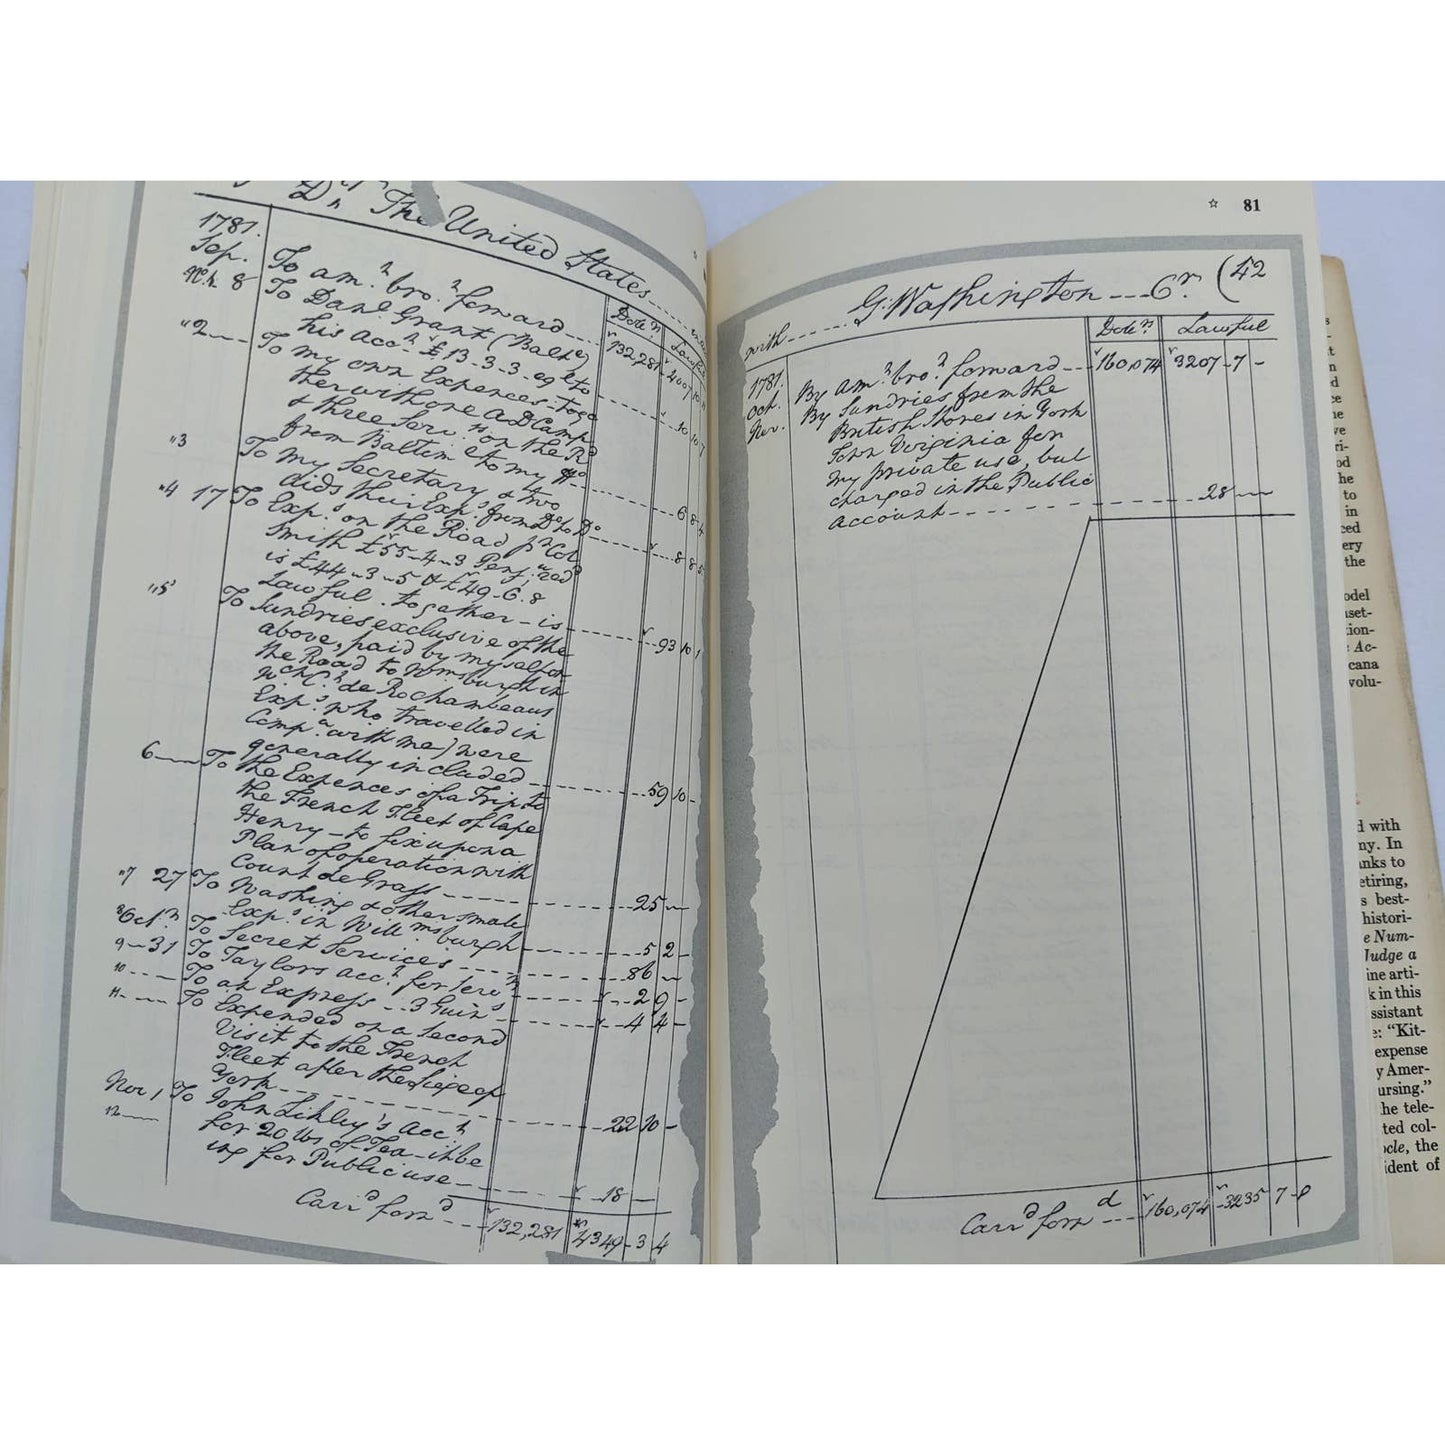 Dr The United States
Dolrs
Lawful
1781.
Sep.
To amt. brot. forward
132,281
4007 10
8
To Danl. Grant (Balte)
his Acct £13-3-3 eql to
10 10 7
"2
To my own Expences toge
ther with one A D Camp
& three Servts on the Rd
from Baltime to my Ho
6 8 4
"3
To my Secretary & two
Aids their Exps. from Do to Do
8 8 5
"4 17
To Exps. on the Road pr Col
Smith £55-4-3
is £44-3-5 & £49-6.8
Lawful. together - is
93 10 1
"5
To Sundries exclusive of the
above, paid by myself on
the Road to Wmsburgh in
wch Ct. de Rochambeaus
Exps. who travelled in
Compa. with me) were
generally included
59 10 -
6
To the Expences of a Trip to
the French Fleet of Cape
Henry - to fix upon a
Plan of operation with
Count de Grass
25
"7 27
To Washing & other small
Exps. in Willmsburgh
5 2 -
8 Octr.
To Secret Services
86
9 - 31
To Taylors acct. for Servts
2 9 -
10
To an Express - 3 Guins
4 4 -
11
To Expended on a second
Visit to the French
Fleet after the Siege of
York
22 10 -
Nov 1
12
To John Likley's Acct.
for 20 lbs of Tea - it be
ing for Public use
18
Carrd forwd
132,281 4349 - 3 4
☆ 81
with G. Washington Cr. (42
Dolrs. Lawful
1781.
Oct.
By amt. brot. forward
160,074 3207 - 7 -
Nov.
By Sundries from the
British Stores in York
Town Virginia for
my private use, but
charged in the Public
Account
28
Carrd forwd
160,074 3235 7 -
with
ny. In
nks to
etiring,
s best-
histori-
e Num-
Judge a
ine arti-
k in this
ssistant
e: "Kit-
expense
y Amer-
ursing."
he tele-
ted col-
ocle, the
ident of